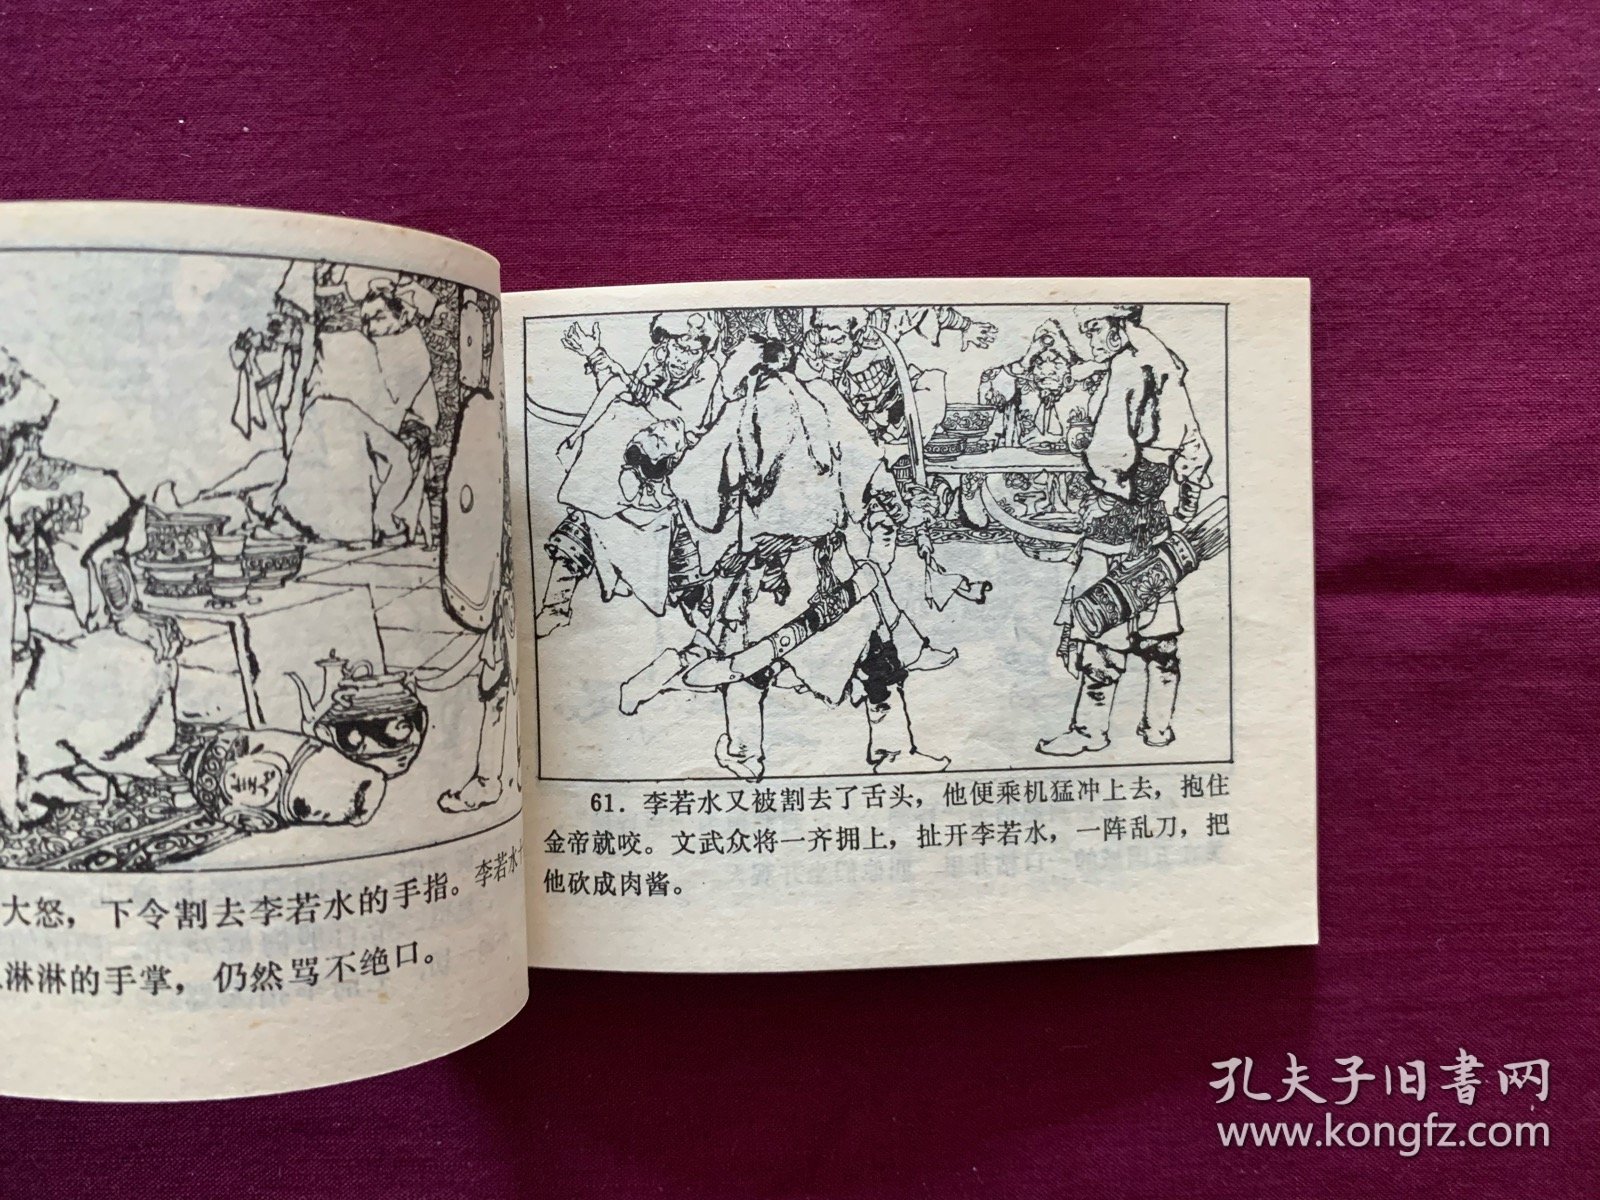 大怒，下令割去李若水的手指。李若水
淋淋的手掌，仍然骂不绝口。
61．李若水又被割去了舌头，他便乘机猛冲上去，抱住
金帝就咬。文武众将一齐拥上，扯开李若水，一阵乱刀，把
他砍成肉酱。
孔夫子旧书网
www.kongfz.com